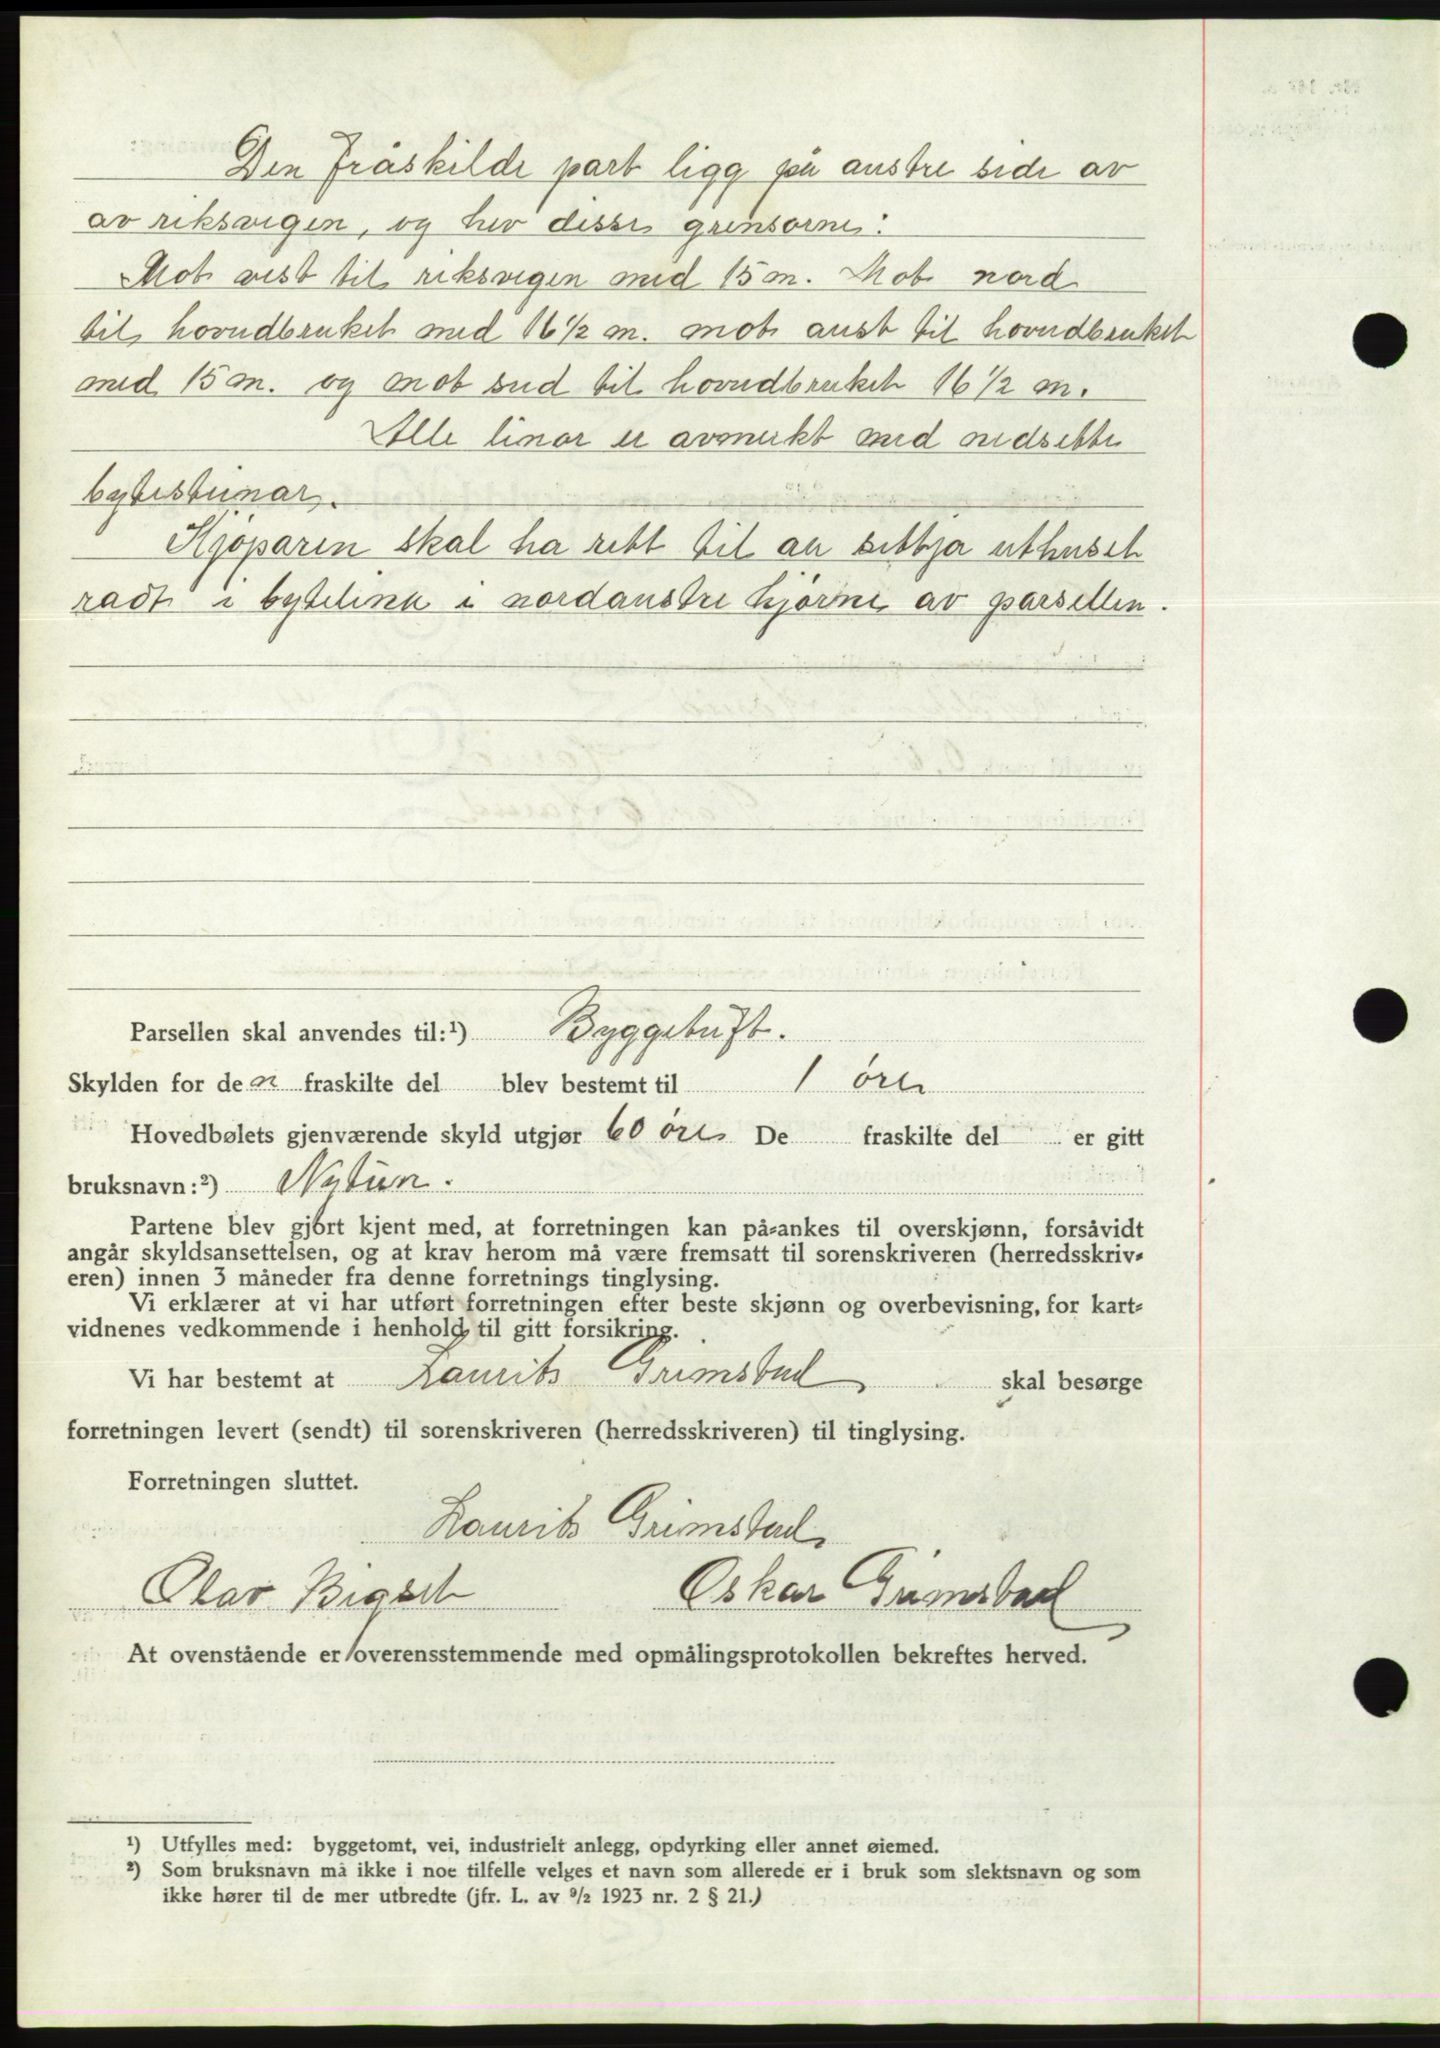 Den fråskilde part ligg på austre side av
av riksvegen, og hev disse grensorne:
Mot vest til riksvegen med 15 m. Mot nord
til hovudbruket med 16 1/2 m. mot aust til hovudbruket
med 15 m. og mot sud til hovudbruket 16 1/2 m.
Alle linor er avmerkt med nedsette
bytesteinar.
Kjøparen skal ha rett til aa settja uthuset
radt i byteline i nordaustre hjørne av parsellen.
Parsellen skal anvendes til:¹) Byggetuft.
Skylden for den fraskilte del blev bestemt til 1 øre
Hovedbølets gjenværende skyld utgjør 60 øre De fraskilte del er gitt
bruksnavn:²) Nytun.
Partene blev gjort kjent med, at forretningen kan på-ankes til overskjønn, forsåvidt
angår skyldsansettelsen, og at krav herom må være fremsatt til sorenskriveren (herredsskriv-
eren) innen 3 måneder fra denne forretnings tinglysing.
Vi erklærer at vi har utført forretningen efter beste skjønn og overbevisning, for kart-
vidnenes vedkommende i henhold til gitt forsikring.
Vi har bestemt at Laurits Grimstad skal besørge
forretningen levert (sendt) til sorenskriveren (herredsskriveren) til tinglysing.
Forretningen sluttet.
Laurits Grimstad
Olav Bigset Oskar Grimstad
At ovenstående er overensstemmende med opmålingsprotokollen bekreftes herved.
¹) Utfylles med: byggetomt, vei, industrielt anlegg, opdyrking eller annet øiemed.
²) Som bruksnavn må ikke i noe tilfelle velges et navn som allerede er i bruk som slektsnavn og som
ikke hører til de mer utbredte (jfr. L. av 9/2 1923 nr. 2 § 21.)